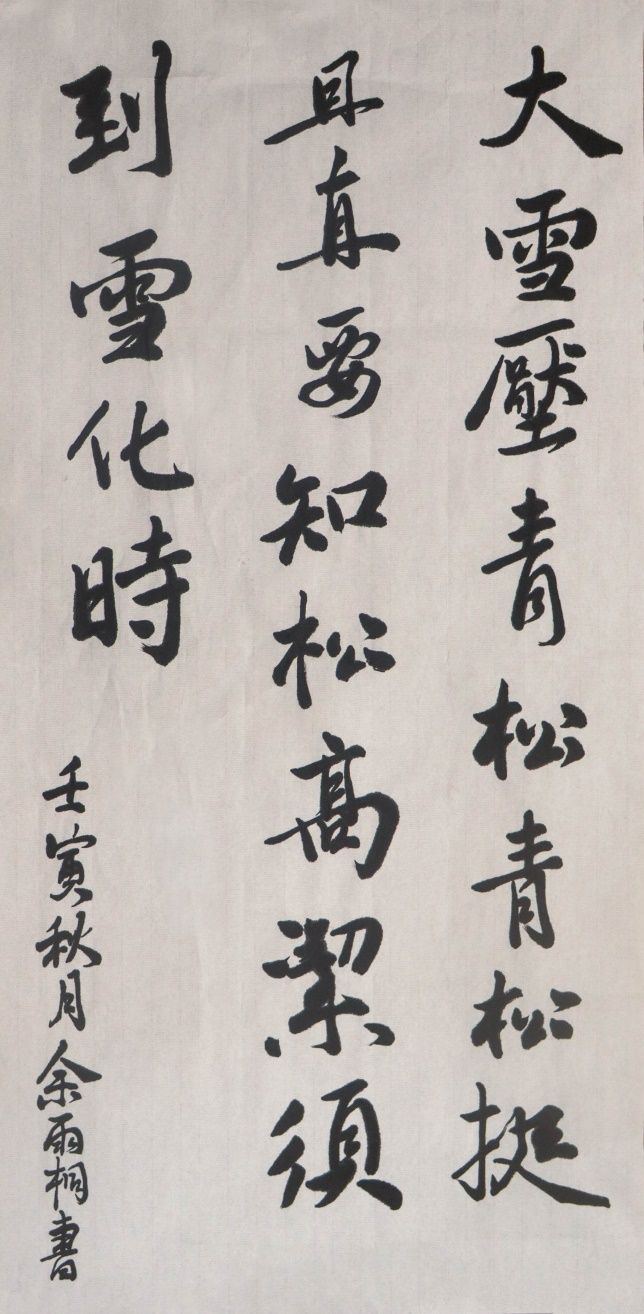 大雪壓青松青松挺
且直要知松高潔須
到雪化時
壬寅秋月余雨桐書